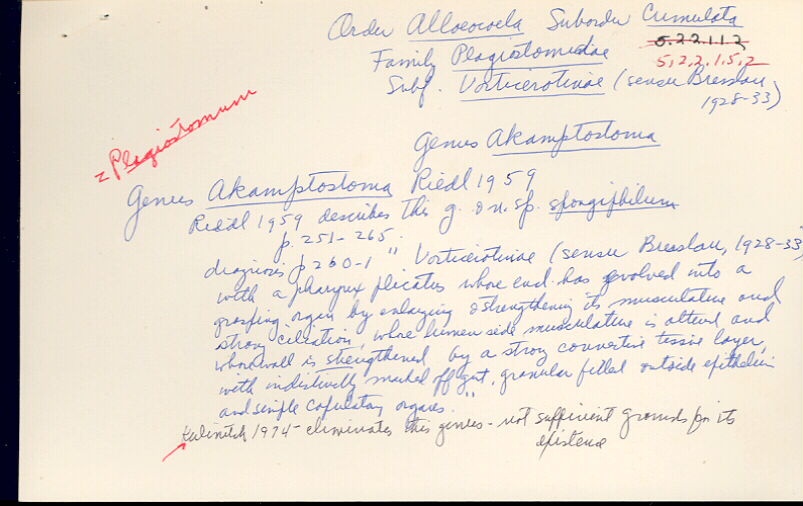 Order Alloeocoela Suborder Cumulata
5.2.2.1.1.2
Family Plagiostomidae 5,2,2,1,5,2
Subf. Vorticerotinae (sensu Bresslau, 1928-33)
= Plagiostomum
Genus Akamptostoma
Genus Akamptostoma Riedl 1959
Riedl 1959 describes this g. & n. sp. spongiphilum
p. 251-265.
diagnosis p 260-1 " Vorticerotinae (sensu Bresslau, 1928-33)
with a pharynx plicatus whose end has evolved into a
grasping organ by enlarging & strengthening its musculature and
strong ciliation, whose lumen side musculature is altered and
whose wall is strengthened by a strong connective tissue layer,
with indistinctly marked off gut, granular filled outside epithelium
and simple copulatory organs."
1974 - eliminates this genus - not sufficient grounds for its
existence